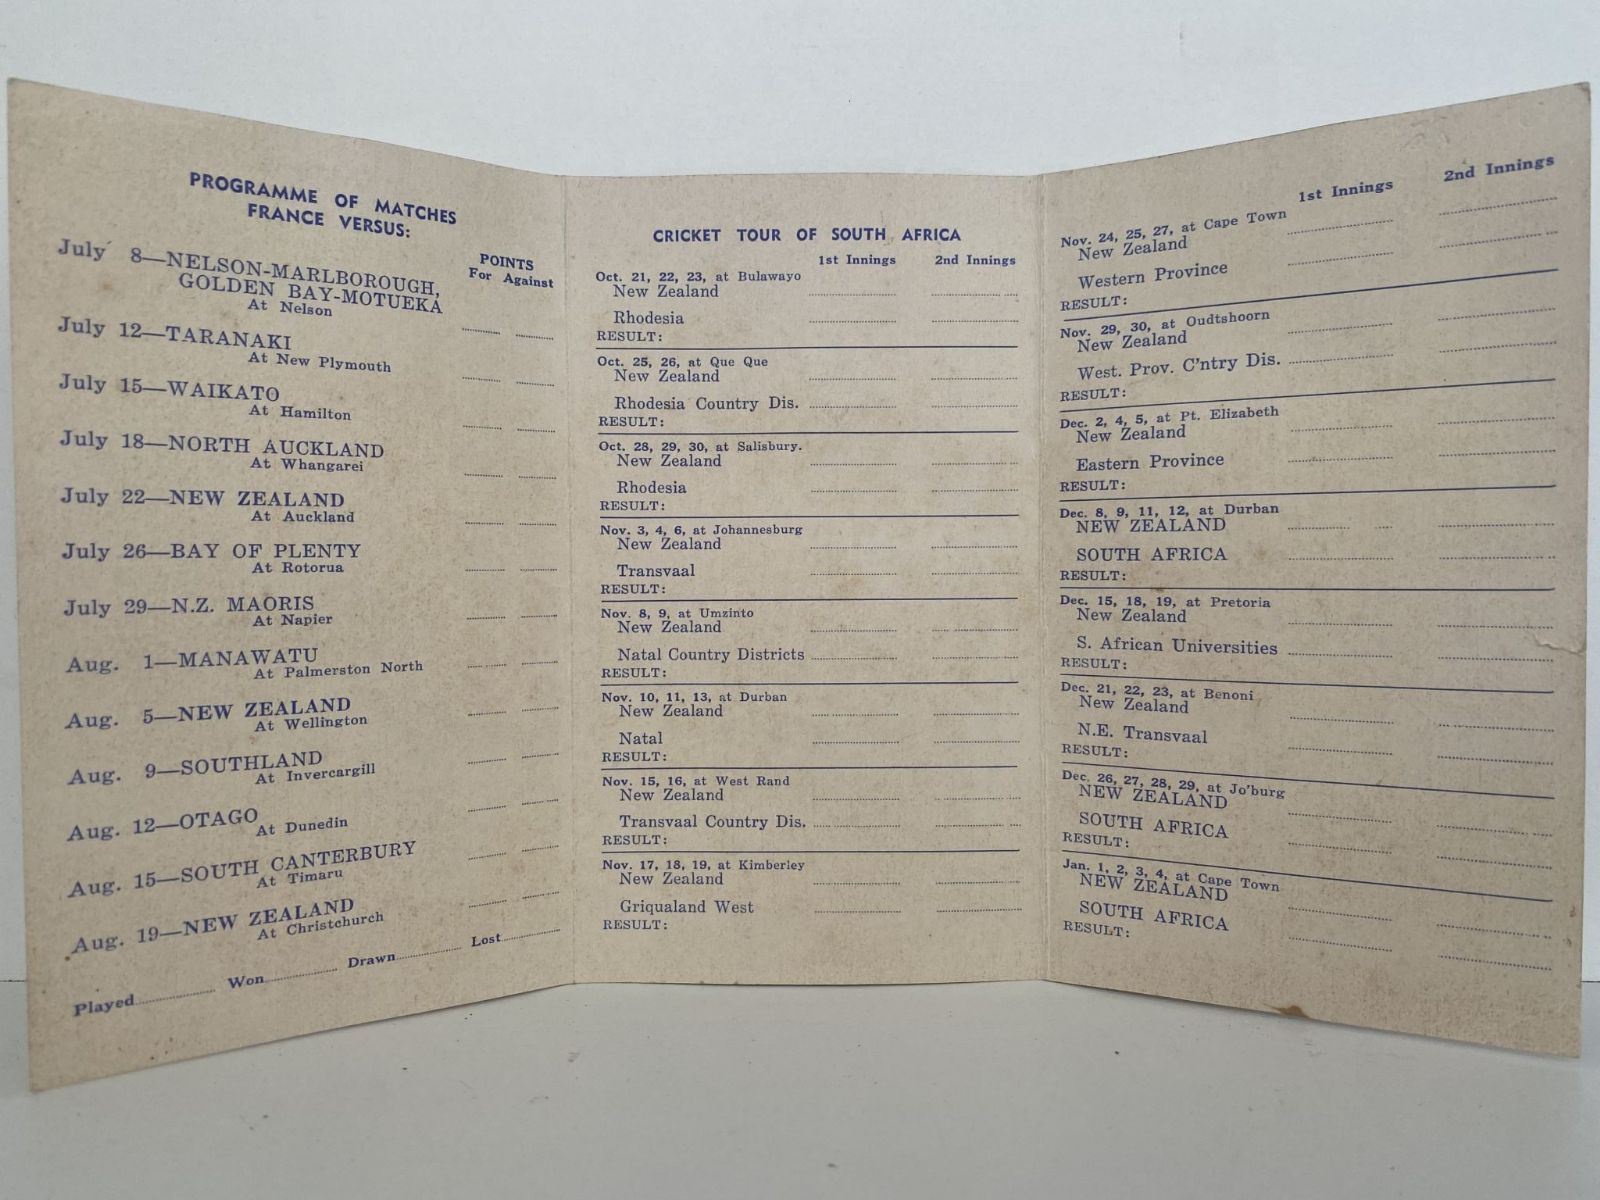 PROGRAMME OF MATCHES
FRANCE VERSUS:
POINTS
For Against
July 8—NELSON-MARLBOROUGH,
GOLDEN BAY-MOTUEKA
At Nelson
July 12—TARANAKI
At New Plymouth
July 15—WAIKATO
At Hamilton
July 18—NORTH AUCKLAND
At Whangarei
July 22—NEW ZEALAND
At Auckland
July 26—BAY OF PLENTY
At Rotorua
July 29—N.Z. MAORIS
At Napier
Aug. 1—MANAWATU
At Palmerston North
Aug. 5—NEW ZEALAND
At Wellington
Aug. 9—SOUTHLAND
At Invercargill
Aug. 12—OTAGO
At Dunedin
Aug. 15—SOUTH CANTERBURY
At Timaru
Aug. 19—NEW ZEALAND
At Christchurch
Played Won Drawn Lost
CRICKET TOUR OF SOUTH AFRICA
1st Innings 2nd Innings
Oct. 21, 22, 23, at Bulawayo
New Zealand
Rhodesia
RESULT:
Oct. 25, 26, at Que Que
New Zealand
Rhodesia Country Dis.
RESULT:
Oct. 28, 29, 30, at Salisbury.
New Zealand
Rhodesia
RESULT:
Nov. 3, 4, 6, at Johannesburg
New Zealand
Transvaal
RESULT:
Nov. 8, 9, at Umzinto
New Zealand
Natal Country Districts
RESULT:
Nov. 10, 11, 13, at Durban
New Zealand
Natal
RESULT:
Nov. 15, 16, at West Rand
New Zealand
Transvaal Country Dis.
RESULT:
Nov. 17, 18, 19, at Kimberley
New Zealand
Griqualand West
RESULT:
1st Innings 2nd Innings
Nov. 24, 25, 27, at Cape Town
New Zealand
Western Province
RESULT:
Nov. 29, 30, at Oudtshoorn
New Zealand
West. Prov. C'ntry Dis.
RESULT:
Dec. 2, 4, 5, at Pt. Elizabeth
New Zealand
Eastern Province
RESULT:
Dec. 8, 9, 11, 12, at Durban
NEW ZEALAND
SOUTH AFRICA
RESULT:
Dec. 15, 18, 19, at Pretoria
New Zealand
S. African Universities
RESULT:
Dec. 21, 22, 23, at Benoni
New Zealand
N.E. Transvaal
RESULT:
Dec. 26, 27, 28, 29, at Jo'burg
NEW ZEALAND
SOUTH AFRICA
RESULT:
Jan. 1, 2, 3, 4, at Cape Town
NEW ZEALAND
SOUTH AFRICA
RESULT: